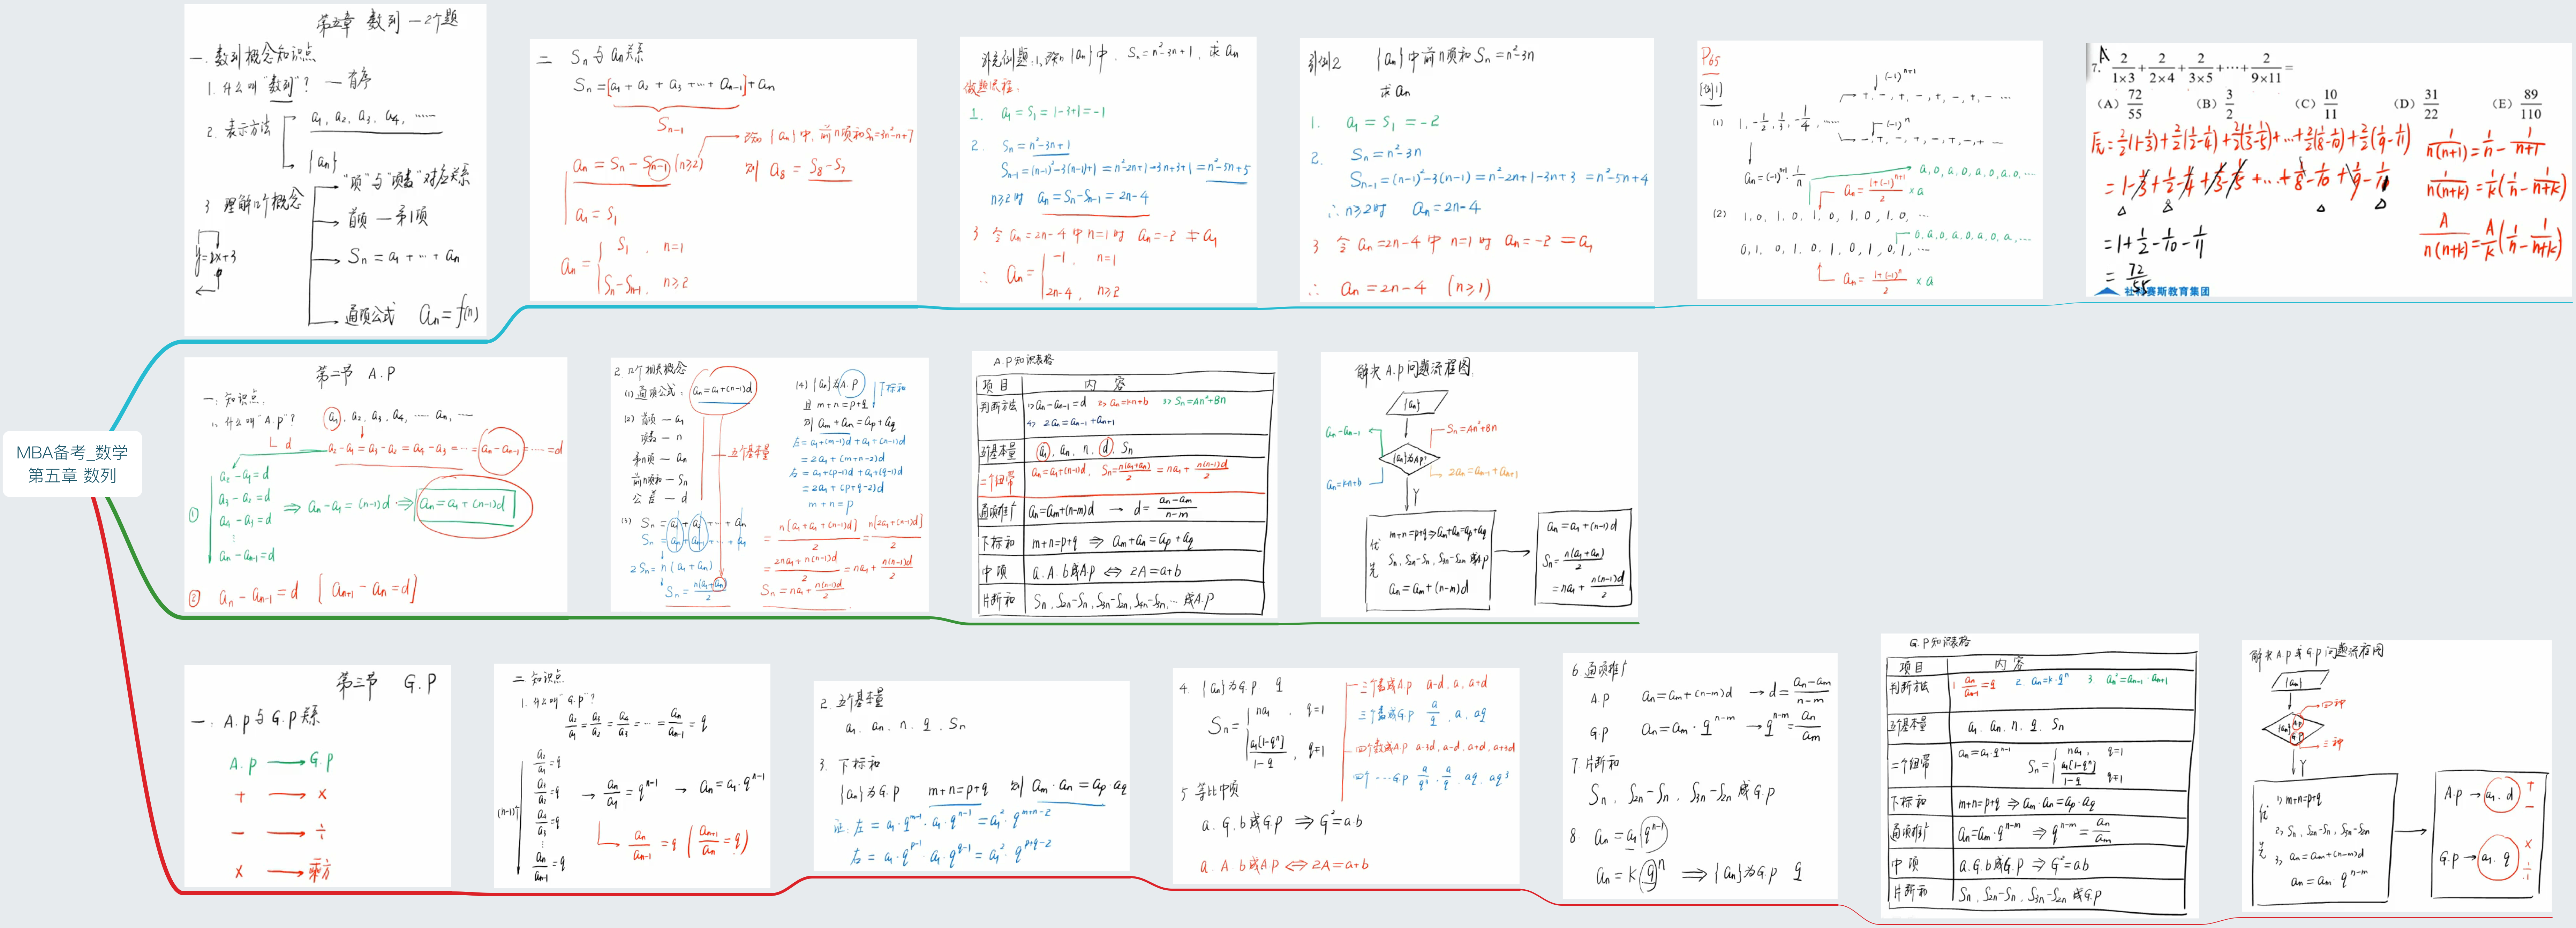 MBA备考_数学
第五章 数列
第五章 数列 — 2个题
一. 数列概念知识点
1. 什么叫"数列"? — 有序
2. 表示方法
a₁, a₂, a₃, a₄, ……
{aₙ}
3 理解几个概念
"项"与"项数"对应关系
首项 — 第1项
Sₙ = a₁ + … + aₙ
通项公式 aₙ = f(n)
y=2x+3
二 Sₙ 与 aₙ 关系
Sₙ = [a₁ + a₂ + a₃ + … + aₙ₋₁] + aₙ
Sₙ₋₁
aₙ = Sₙ − Sₙ₋₁ (n≥2)
a₁ = S₁
{aₙ}中, 前n项和Sₙ=3n²−n+7
则 a₈ = S₈ − S₇
aₙ = { S₁, n=1
Sₙ−Sₙ₋₁, n≥2
补充例题: 1, {aₙ}中, Sₙ = n²−3n+1, 求 aₙ
做题流程:
1. a₁ = S₁ = 1−3+1 = −1
2. Sₙ = n²−3n+1
Sₙ₋₁ = (n−1)²−3(n−1)+1 = n²−2n+1−3n+3+1 = n²−5n+5
n≥2时 aₙ = Sₙ−Sₙ₋₁ = 2n−4
3 令 aₙ = 2n−4 中 n=1 时 aₙ = −2 ≠ a₁
∴ aₙ = { −1, n=1
2n−4, n≥2
引例2 {aₙ}中前n项和 Sₙ = n²−3n
求 aₙ
1. a₁ = S₁ = −2
2. Sₙ = n²−3n
Sₙ₋₁ = (n−1)²−3(n−1) = n²−2n+1−3n+3 = n²−5n+4
∴ n≥2时 aₙ = 2n−4
3 令 aₙ = 2n−4 中 n=1 时 aₙ = −2 = a₁
∴ aₙ = 2n−4 (n≥1)
P65
[例1]
(1) 1, −1/2, 1/3, −1/4, ……
(−1)ⁿ⁺¹
+, −, +, −, +, −, +, − …
(−1)ⁿ
−, +, −, +, −, +, −, + …
aₙ = (−1)ⁿ⁺¹ · 1/n
a, 0, a, 0, a, 0, a, 0, …
aₙ = (1+(−1)ⁿ⁺¹)/2 × a
(2) 1, 0, 1, 0, 1, 0, 1, 0, 1, 0, …
0, 1, 0, 1, 0, 1, 0, 1, 0, 1, …
0, a, 0, a, 0, a, 0, a, …
aₙ = (1+(−1)ⁿ)/2 × a
A
7. 2/(1×3) + 2/(2×4) + 2/(3×5) + ⋯ + 2/(9×11) =
(A) 72/55 (B) 3/2 (C) 10/11 (D) 31/22 (E) 89/110
原 = 2/2(1−1/3) + 2/2(1/2−1/4) + 2/2(1/3−1/5) + … + 2/2(1/8−1/10) + 2/2(1/9−1/11)
= 1−1/3+1/2−1/4+1/3−1/5+…+1/8−1/10+1/9−1/11
= 1+1/2−1/10−1/11
= 72/55
1/(n(n+1)) = 1/n − 1/(n+1)
1/(n(n+k)) = 1/k(1/n − 1/(n+k))
A/(n(n+k)) = A/k(1/n − 1/(n+k))
社科赛斯教育集团
第二节 A.P
一: 知识点
1, 什么叫"A.P"? a₁, a₂, a₃, a₄, …… aₙ, …
d a₂−a₁ = a₃−a₂ = a₄−a₃ = … = aₙ−aₙ₋₁ = … = d
① a₂−a₁=d
a₃−a₂=d
a₄−a₃=d
⋮
aₙ−aₙ₋₁=d
⇒ aₙ−a₁ = (n−1)d ⇒ aₙ = a₁ + (n−1)d
② aₙ − aₙ₋₁ = d [aₙ₊₁ − aₙ = d]
2 几个相关概念
(1) 通项公式: aₙ=a₁+(n−1)d
(2) 首项 — a₁
项数 — n
第n项 — aₙ
前n项和 — Sₙ
公差 — d
五个基本量
(3) Sₙ = a₁ + a₂ + … + aₙ
Sₙ = aₙ + aₙ₋₁ + … + a₁
2Sₙ = n(a₁+aₙ)
Sₙ = n(a₁+aₙ)/2
(4) {aₙ}为A.P 下标和
且 m+n=p+q
则 aₘ+aₙ=aₚ+a_q
左 = a₁+(m−1)d + a₁+(n−1)d
= 2a₁ + (m+n−2)d
右 = a₁+(p−1)d + a₁+(q−1)d
= 2a₁ + (p+q−2)d
m+n=p
= n[a₁+a₁+(n−1)d]/2 = n[2a₁+(n−1)d]/2
= (2na₁+n(n−1)d)/2 = na₁ + n(n−1)d/2
Sₙ = na₁ + n(n−1)d/2
A.P知识表格
项目 内容
判断方法 1) aₙ−aₙ₋₁=d 2) aₙ=kn+b 3) Sₙ=An²+Bn
4) 2aₙ=aₙ₋₁+aₙ₊₁
五个基本量 a₁, aₙ, n, d, Sₙ
二个纽带 aₙ=a₁+(n−1)d, Sₙ=n(a₁+aₙ)/2 = na₁+n(n−1)d/2
通项推广 aₙ=aₘ+(n−m)d → d=(aₙ−aₘ)/(n−m)
下标和 m+n=p+q ⇒ aₘ+aₙ=aₚ+a_q
中项 a.A.b成A.P ⇔ 2A=a+b
片断和 Sₙ, S₂ₙ−Sₙ, S₃ₙ−S₂ₙ, S₄ₙ−S₃ₙ, … 成A.P
解决A.P问题流程图
{aₙ}
aₙ−aₙ₋₁
Sₙ=An²+Bn
{aₙ}为AP?
aₙ=kn+b
2aₙ=aₙ₋₁+aₙ₊₁
Y
优先
m+n=p+q⇒aₘ+aₙ=aₚ+a_q
Sₙ, S₂ₙ−Sₙ, S₃ₙ−S₂ₙ 成A.P
aₙ=aₘ+(n−m)d
aₙ=a₁+(n−1)d
Sₙ=n(a₁+aₙ)/2
=na₁+n(n−1)d/2
第三节 G.P
一: A.P与G.P关系
A.P → G.P
+ → ×
− → ÷
× → 乘方
二 知识点
1. 什么叫"G.P"?
a₂/a₁ = a₃/a₂ = a₄/a₃ = … = aₙ/aₙ₋₁ = q
(n−1)个
a₂/a₁=q
a₃/a₂=q
a₄/a₃=q
⋮
aₙ/aₙ₋₁=q
→ aₙ/a₁ = qⁿ⁻¹ → aₙ = a₁·qⁿ⁻¹
aₙ/aₙ₋₁ = q (aₙ₊₁/aₙ = q)
2. 五个基本量
a₁, aₙ, n, q, Sₙ
3. 下标和
{aₙ}为G.P m+n=p+q 则 aₘ·aₙ=aₚ·a_q
证: 左 = a₁·qᵐ⁻¹·a₁·qⁿ⁻¹ = a₁²·qᵐ⁺ⁿ⁻²
右 = a₁·qᵖ⁻¹·a₁·q^(q−1) = a₁²·q^(p+q−2)
4. {aₙ}为G.P q
Sₙ = { na₁, q=1
a₁(1−qⁿ)/(1−q), q≠1
三个数成A.P a−d, a, a+d
三个数成G.P a/q, a, aq
四个数成A.P a−3d, a−d, a+d, a+3d
四个…G.P a/q³, a/q, aq, aq³
5 等比中项
a.G.b成G.P ⇒ G²=a·b
a.A.b成A.P ⇔ 2A=a+b
6 通项推广
A.P aₙ=aₘ+(n−m)d → d=(aₙ−aₘ)/(n−m)
G.P aₙ=aₘ·qⁿ⁻ᵐ → qⁿ⁻ᵐ=aₙ/aₘ
7. 片断和
Sₙ, S₂ₙ−Sₙ, S₃ₙ−S₂ₙ 成G.P
8 aₙ=a₁qⁿ⁻¹
aₙ=k qⁿ ⇒ {aₙ}为G.P q
G.P知识表格
项目 内容
判断方法 1 aₙ/aₙ₋₁=q 2. aₙ=k·qⁿ 3 aₙ²=aₙ₋₁·aₙ₊₁
五个基本量 a₁, aₙ, n, q, Sₙ
二个纽带 aₙ=a₁·qⁿ⁻¹ Sₙ={ na₁, q=1
a₁(1−qⁿ)/(1−q) q≠1
下标和 m+n=p+q ⇒ aₘ·aₙ=aₚ·a_q
通项推广 aₙ=aₘ·qⁿ⁻ᵐ ⇒ qⁿ⁻ᵐ=aₙ/aₘ
中项 a.G.b成G.P ⇒ G²=ab
片断和 Sₙ, S₂ₙ−Sₙ, S₃ₙ−S₂ₙ 成G.P
解决A.P与G.P问题流程图
{aₙ}
四种
{aₙ} A.P G.P
三种
Y
优先
1) m+n=p+q
2) Sₙ, S₂ₙ−Sₙ, S₃ₙ−S₂ₙ
3) aₙ=aₘ+(n−m)d
aₙ=aₘ·qⁿ⁻ᵐ
A.P → a₁.d + −
G.P → a₁.q × ÷